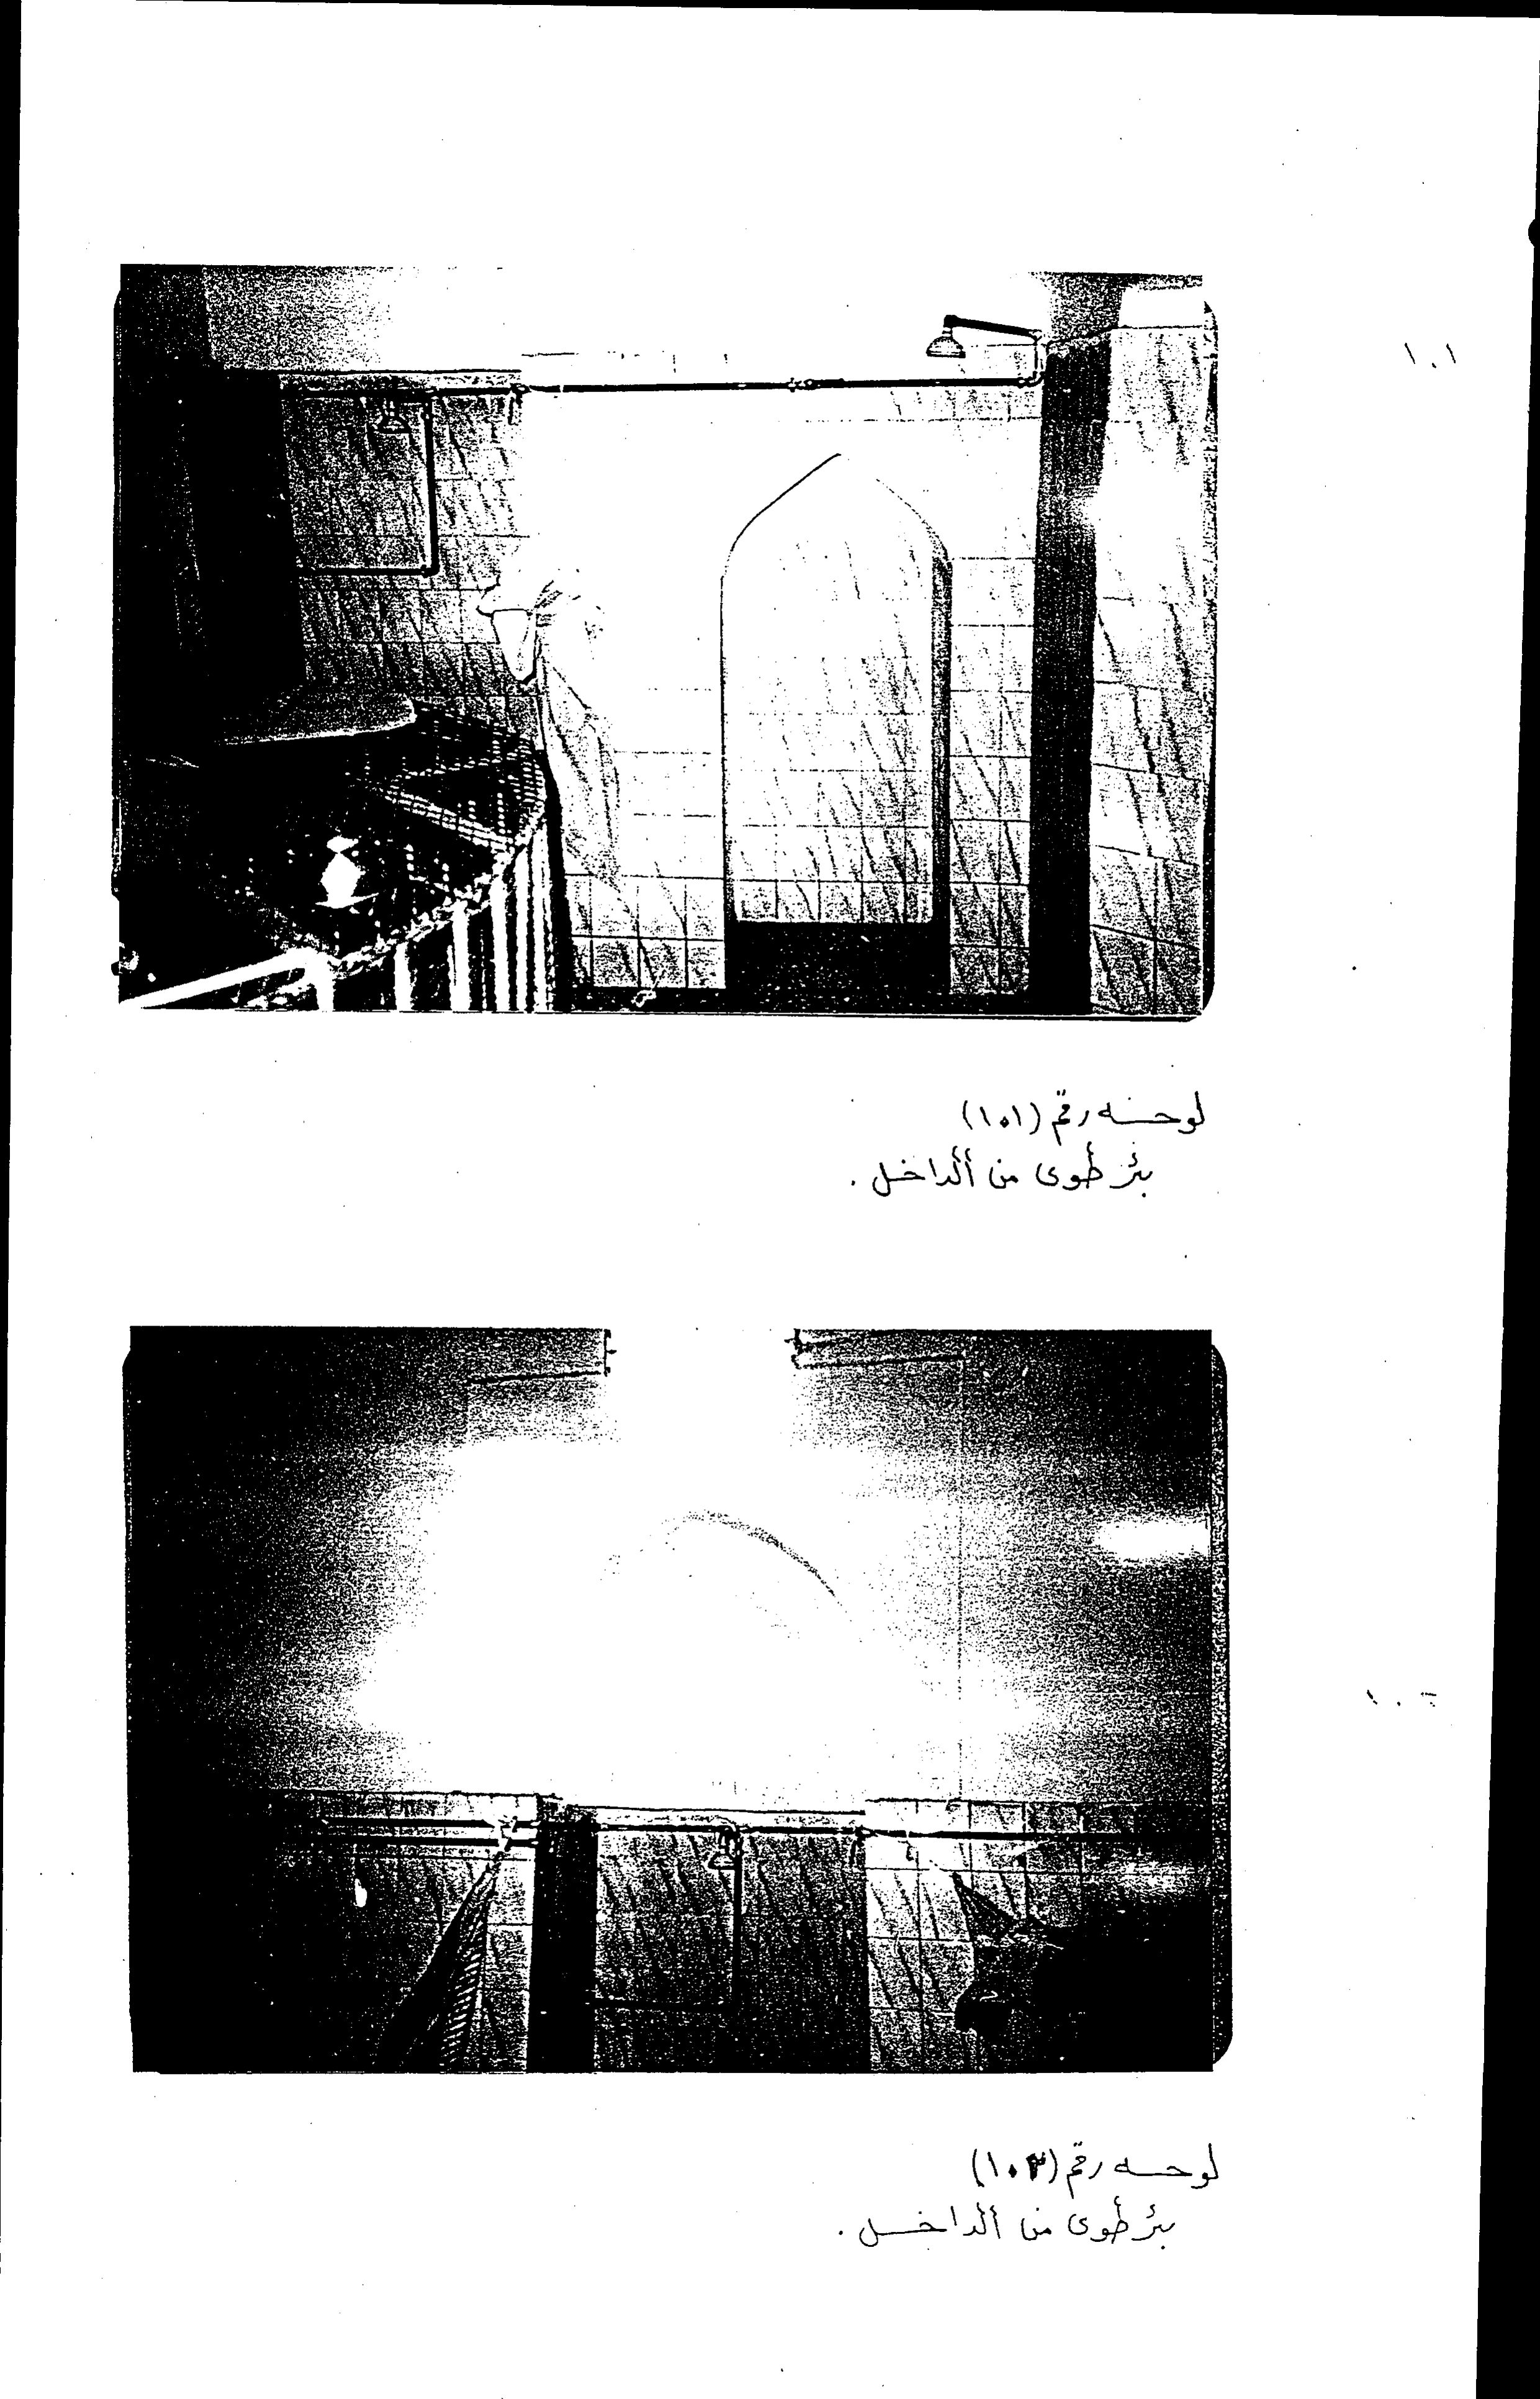 ١٠١
لوحه رقم (١٠١)
بئر طوى من الداخل .
١٠٢
لوحه رقم (١٠٢)
بئر طوى من الداخل .